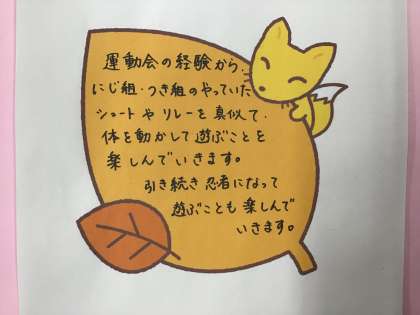 運動会の経験から、
にじ組・つき組のやっていた
シュートやリレーを真似て、
体を動かして遊ぶことを
楽しんでいきます。
引き続き忍者になって
遊ぶことも楽しんで
いきます。